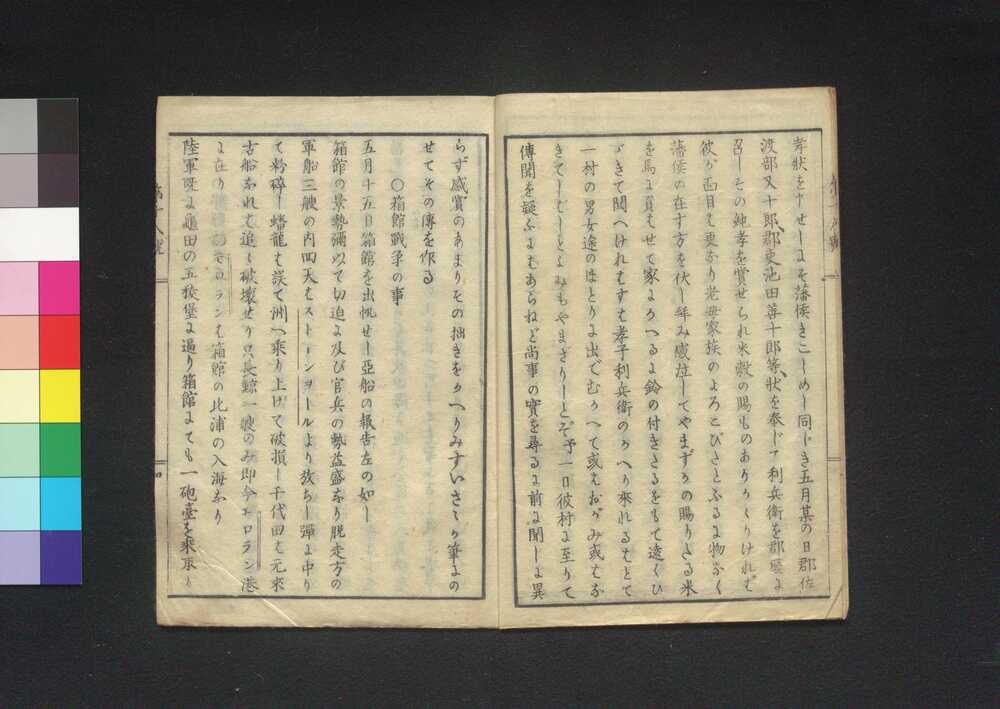 孝狀を十せしよそ藩侯きこしめし同じき五月某の日郡佐
渡部又十郎、郡吏池田善十郎等、狀を奉じて利兵衛を郡廳よ
召しその純孝を賞せられ米穀の賜ものありかくりけれど
彼が面目も更なり老母家族のよろこびさとふるよ物なく
藩侯の在す方を伏し拜み感泣してやまずかの賜りたる米
を馬よ負せて家よかへるよ鈴の付きたるをもて遠くひ
ゞきて聞へけれむすも孝子利兵衛のかへり來れるもとて
一村の男女途のほとりよ出でむかへて或もおがみ或もな
きてしじしとよみもやまざりしとぞ予一日彼村よ至りて
傳聞を疑ふよもあらねど尚事の實を尋るよ前よ聞しよ異
らず感賞のあまりその拙きをかへりみすいさゝか筆よの
せてその傳を作る
○箱館戰爭の事
五月十五日箱館を出帆せし亞船の報告左の如し
箱館の景勢彌以て切迫よ及び官兵の勢益盛なり脱走方の
軍船三艘の内回天もストーンヲールより放ちし彈よ中り
て粉碎し蟠龍も誤て洲へ乘り上げて破損し千代田も元來
古船なれも追々破壞せり只長鯨一艘のみ即今エロラン港
よ在り エロランも箱館の北浦の入海なり
陸軍既よ龜田の五稜堡よ過り箱館よても一砲臺を乘取り
四